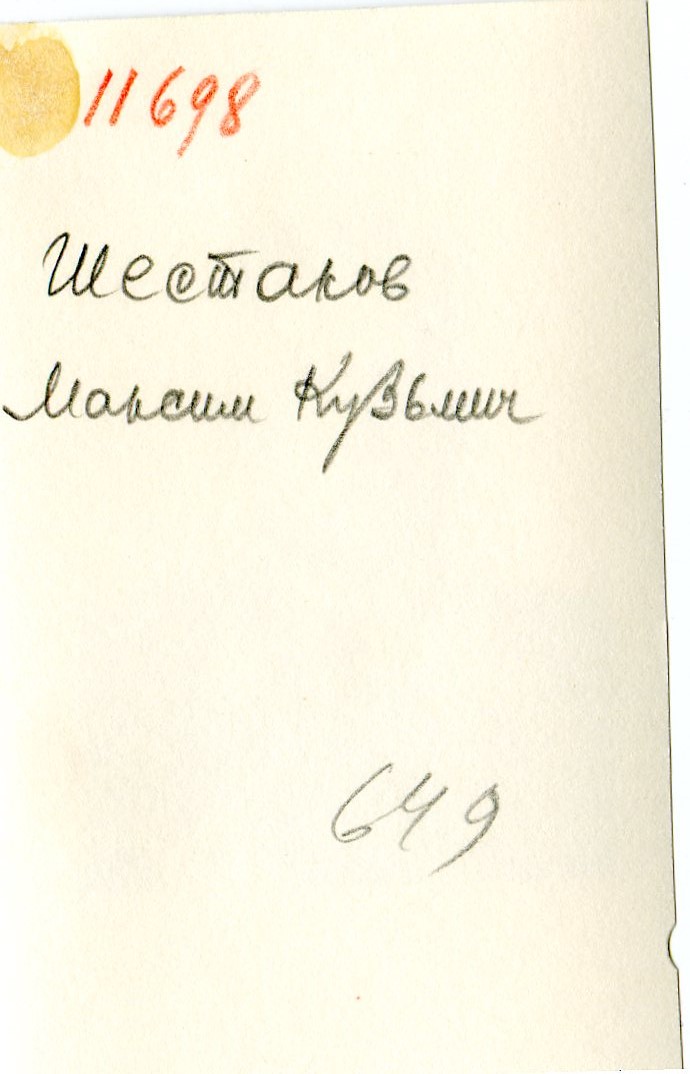 11698
Шестаков
Максим Кузьмич
649